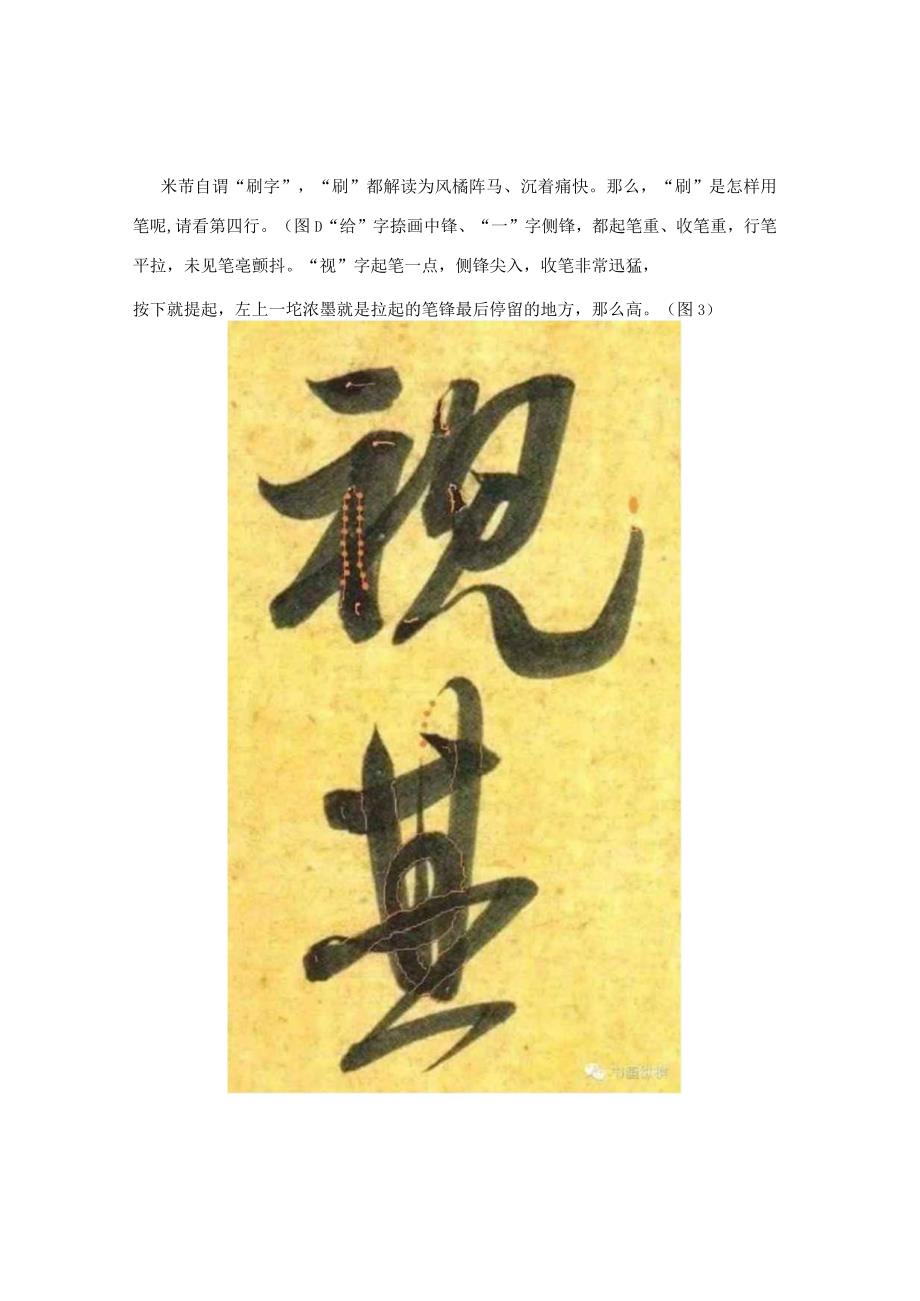 米芾自谓“刷字”，“刷”都解读为风橘阵马、沉着痛快。那么，“刷”是怎样用
笔呢,请看第四行。（图D“给”字捺画中锋、“一”字侧锋，都起笔重、收笔重，行笔
平拉，未见笔亳颤抖。“视”字起笔一点，侧锋尖入，收笔非常迅猛，
按下就提起，左上一坨浓墨就是拉起的笔锋最后停留的地方，那么高。（图3）
视
其